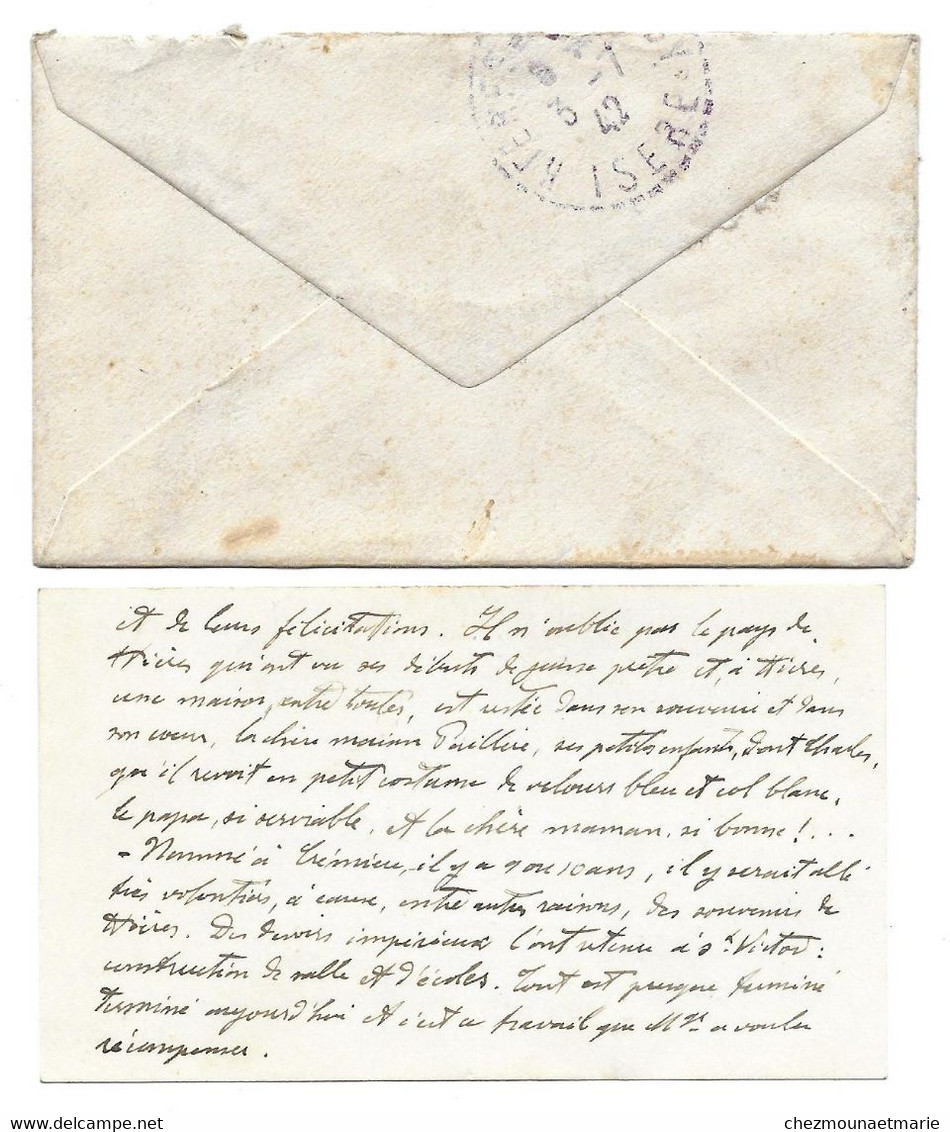 3 -7
42
ISERE
et de leurs félicitations. Il n'oublie pas le pays de
Hières qui ont vu ses débuts de jeune prêtre et, à Hières,
une maison, entre toutes, est restée dans son souvenir et dans
son cœur, la chère maison Paillère, ses petits enfants, dont Charles,
qu'il revoit en petit costume de velours bleu et col blanc,
le papa, si serviable, et la chère maman, si bonne!...
- Nommé à Crémieu, il y a 9 ou 10 ans, il y serait allé
très volontiers, à cause, entre autres raisons, des souvenirs de
Hières. Des devoirs impérieux l'ont retenu à St. Victor:
construction de salle et d'écoles. Tout est presque terminé
terminé aujourd'hui et c'est ce travail que Mgr a voulu
récompenser.
chezmounaetmarie